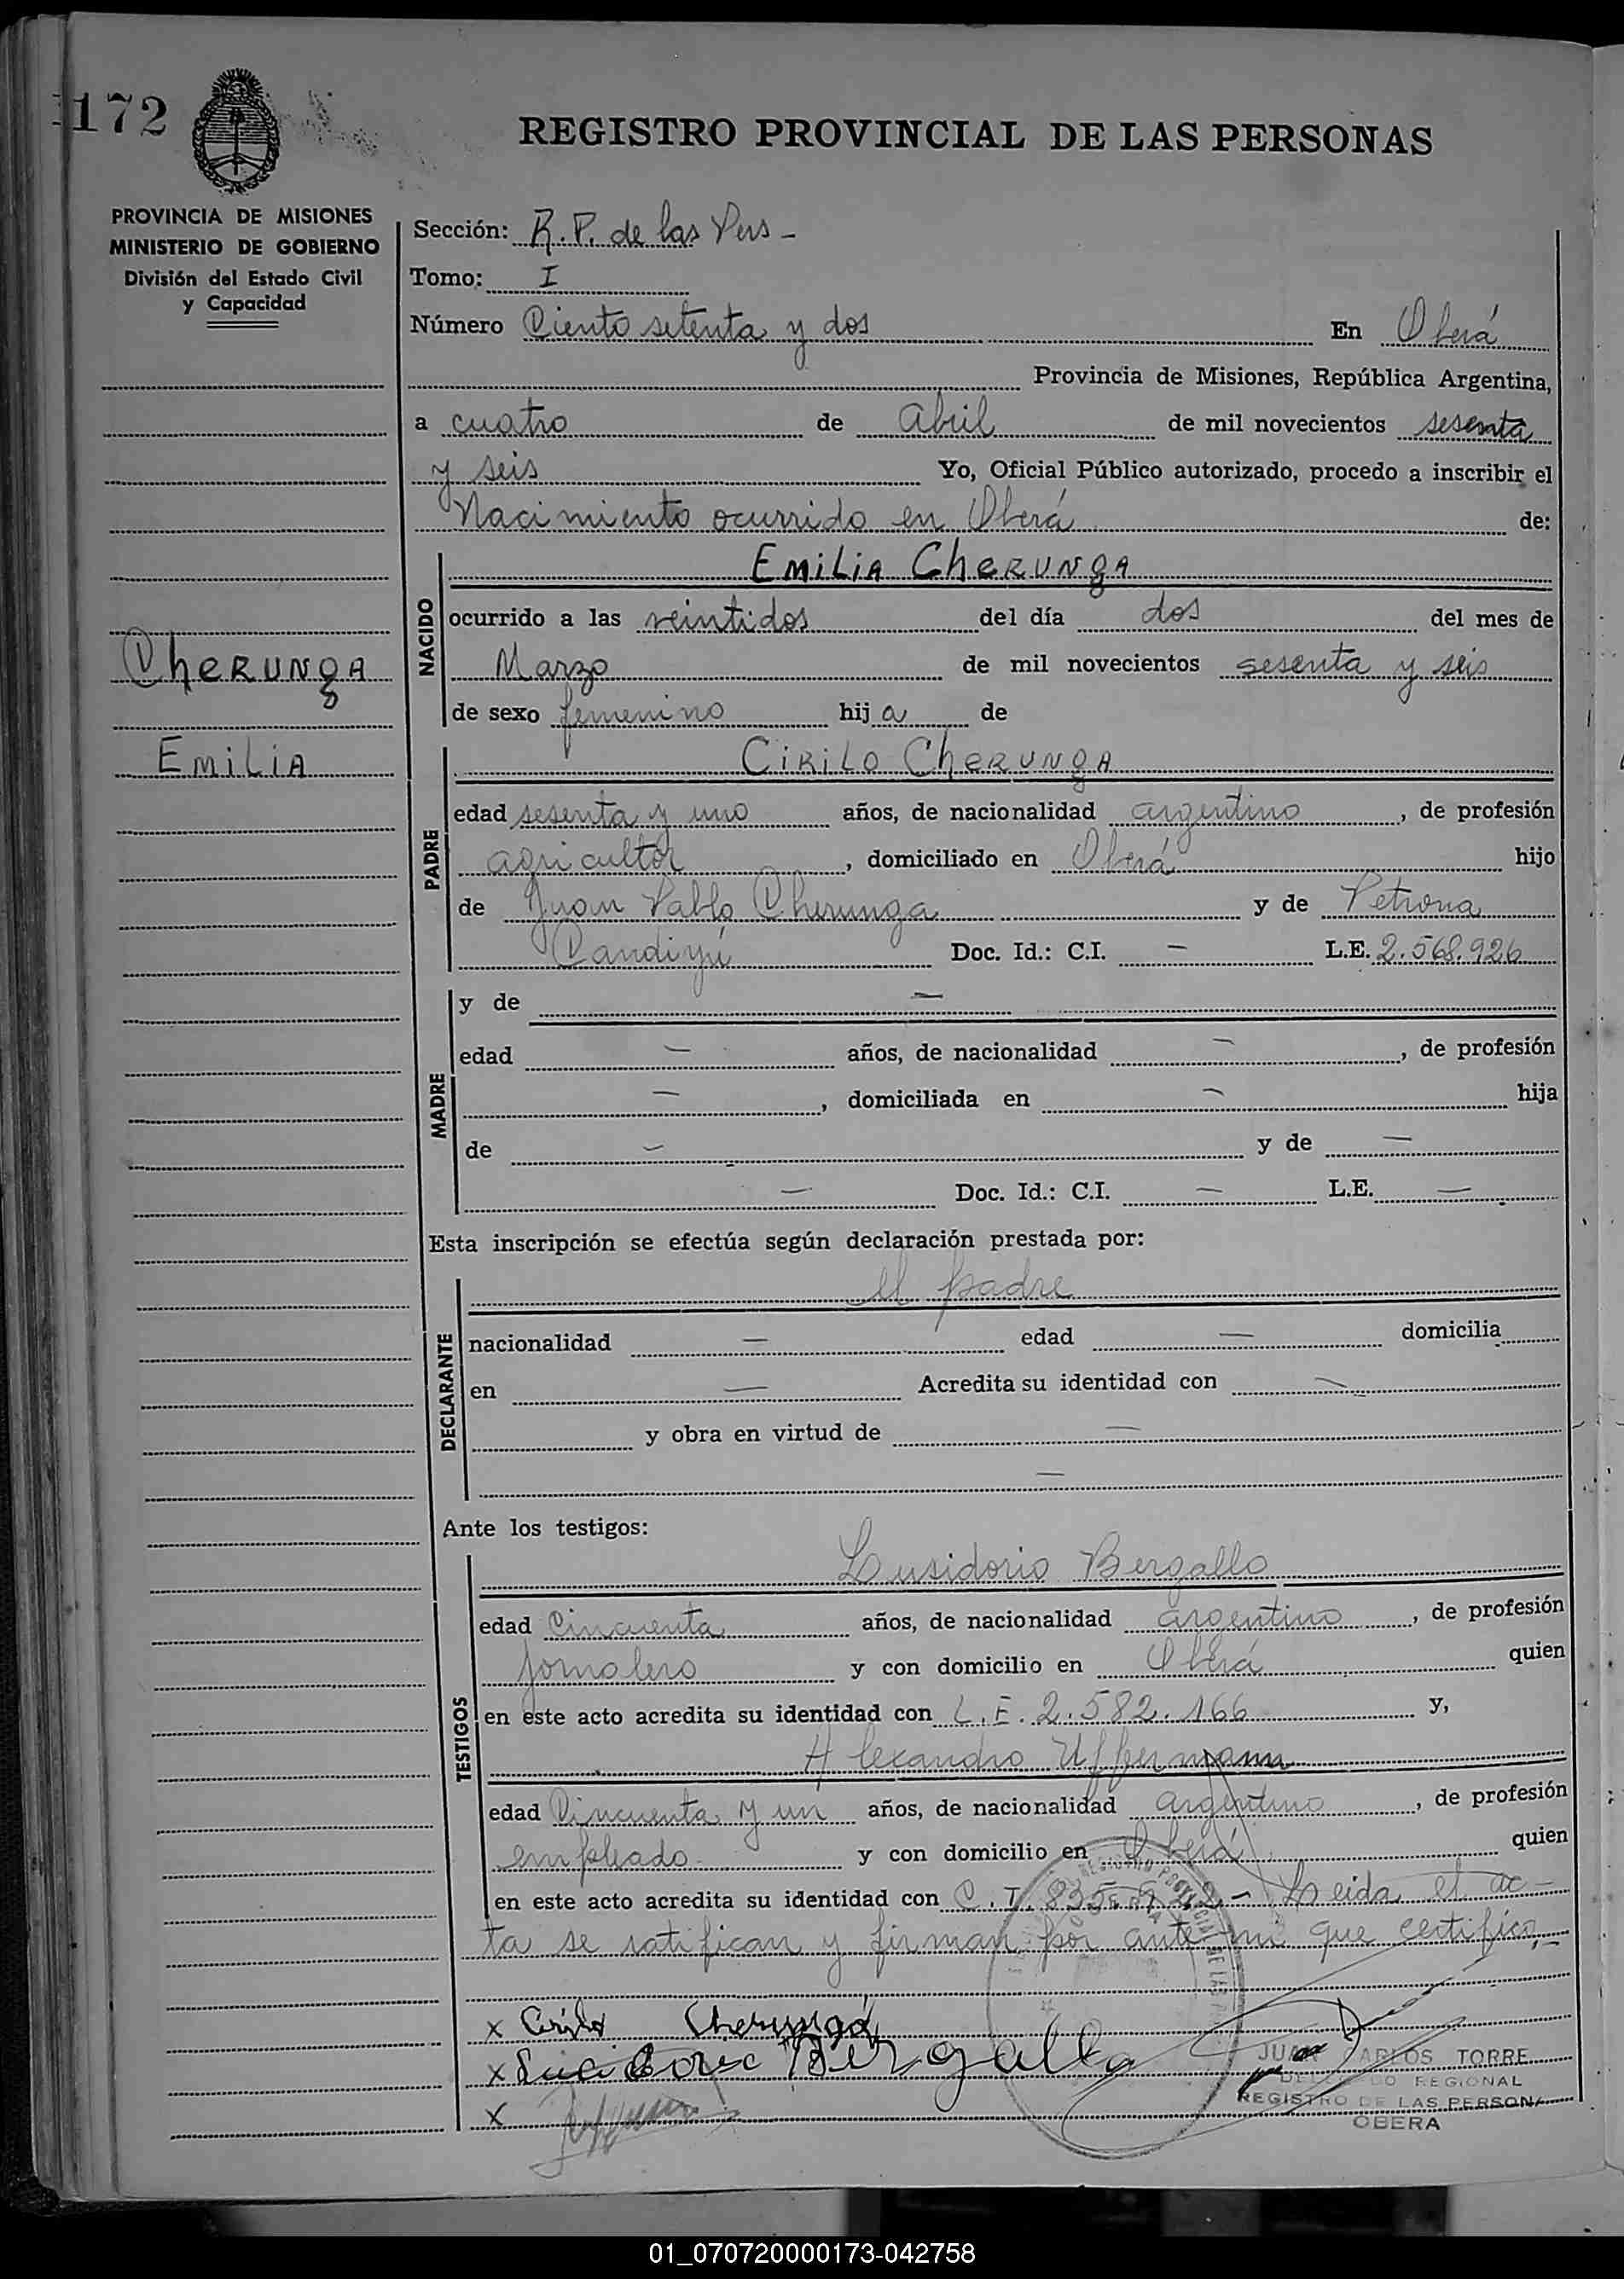 172
REGISTRO PROVINCIAL DE LAS PERSONAS
PROVINCIA DE MISIONES
MINISTERIO DE GOBIERNO
División del Estado Civil
y Capacidad
Cherunga
Emilia
Sección: R.P. de las Pers -
Tomo: I
Número Ciento setenta y dos En Oberá
Provincia de Misiones, República Argentina,
a cuatro de abril de mil novecientos sesenta
y seis Yo, Oficial Público autorizado, procedo a inscribir el
Nacimiento ocurrido en Oberá de:
NACIDO
Emilia Cherunga
ocurrido a las veintidos del día dos del mes de
Marzo de mil novecientos sesenta y seis
de sexo femenino hija de
PADRE
Cirilo Cherunga
edad sesenta y uno años, de nacionalidad argentino, de profesión
agricultor, domiciliado en Oberá hijo
de Juan Pablo Cherunga y de Petrona
Candiyú Doc. Id.: C.I. — L.E. 2.568.926
MADRE
y de —
edad — años, de nacionalidad —, de profesión
—, domiciliada en — hija
de — y de —
— Doc. Id.: C.I. — L.E. —
Esta inscripción se efectúa según declaración prestada por:
DECLARANTE
el padre
nacionalidad — edad — domicilia
en — Acredita su identidad con —
y obra en virtud de —
—
Ante los testigos:
TESTIGOS
Lusidorio Bergallo
edad Cincuenta años, de nacionalidad argentino, de profesión
jornalero y con domicilio en Oberá quien
en este acto acredita su identidad con L.E. 2.582.166 y,
Alexandro Uffermann
edad Cincuenta y un años, de nacionalidad argentino, de profesión
empleado y con domicilio en Oberá quien
en este acto acredita su identidad con C.I. - Leida el ac-
ta se ratifican y firman por ante mi que certifico.-
x Cirilo Cherunga
x Bergallo
x
JUAN CARLOS TORRE
DELEGADO REGIONAL
REGISTRO DE LAS PERSONAS
OBERA
01_070720000173-042758